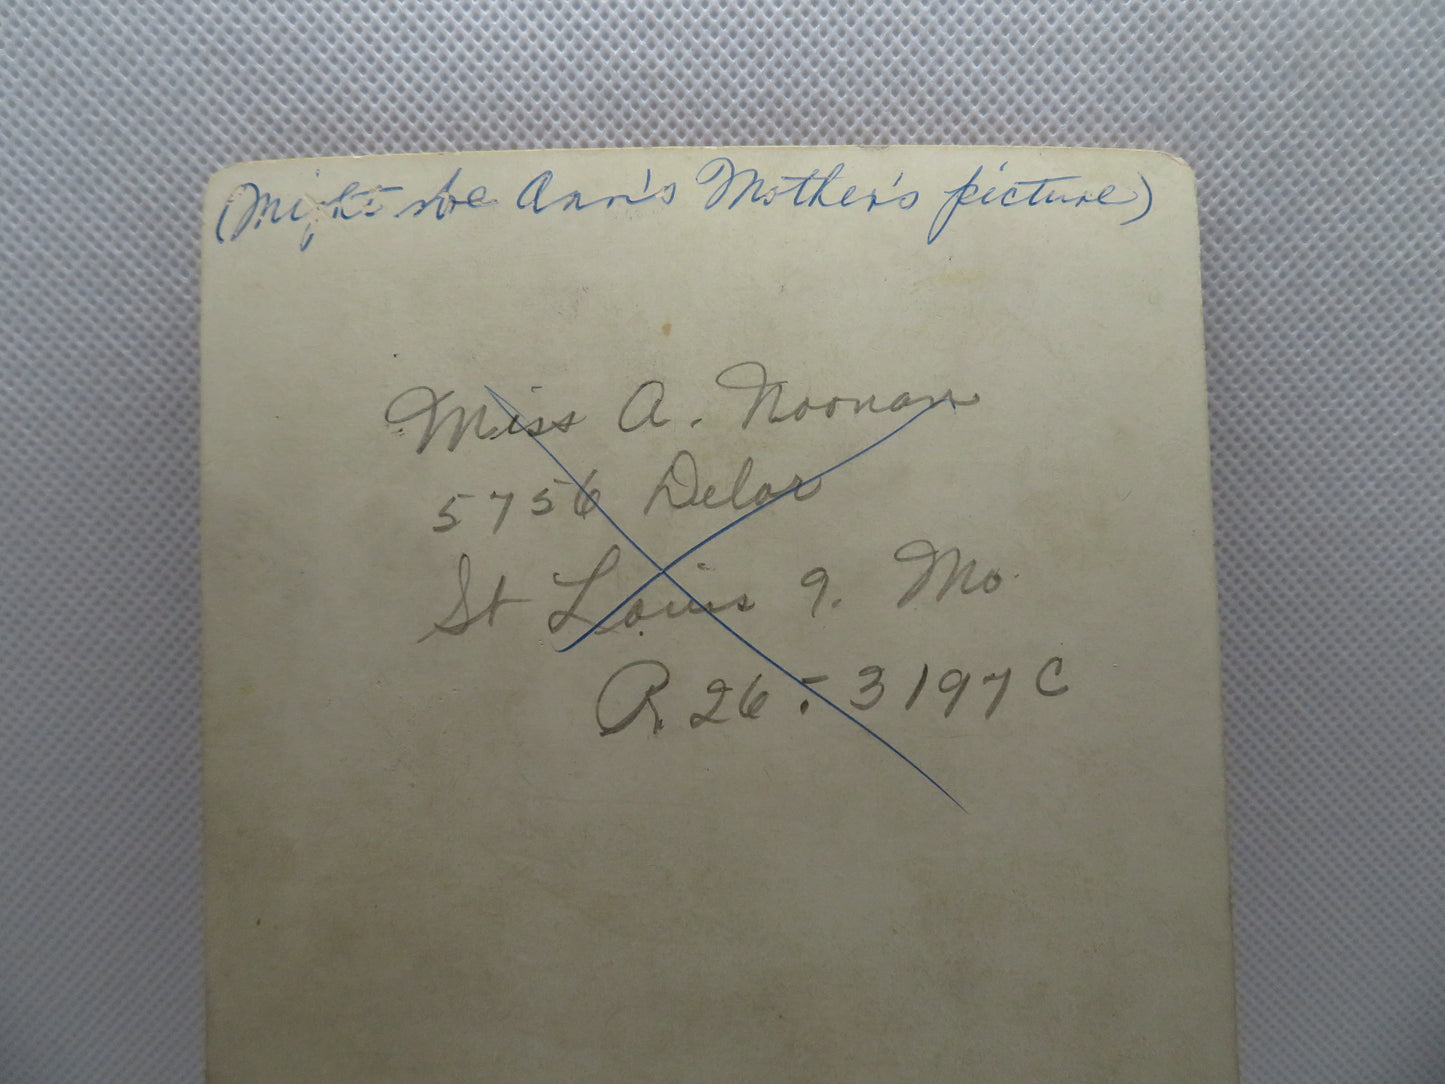 (Might be Ann's Mother's picture)
Miss A. Noonan
5756 Delor
St Louis 9. Mo
R 26 - 3197 C